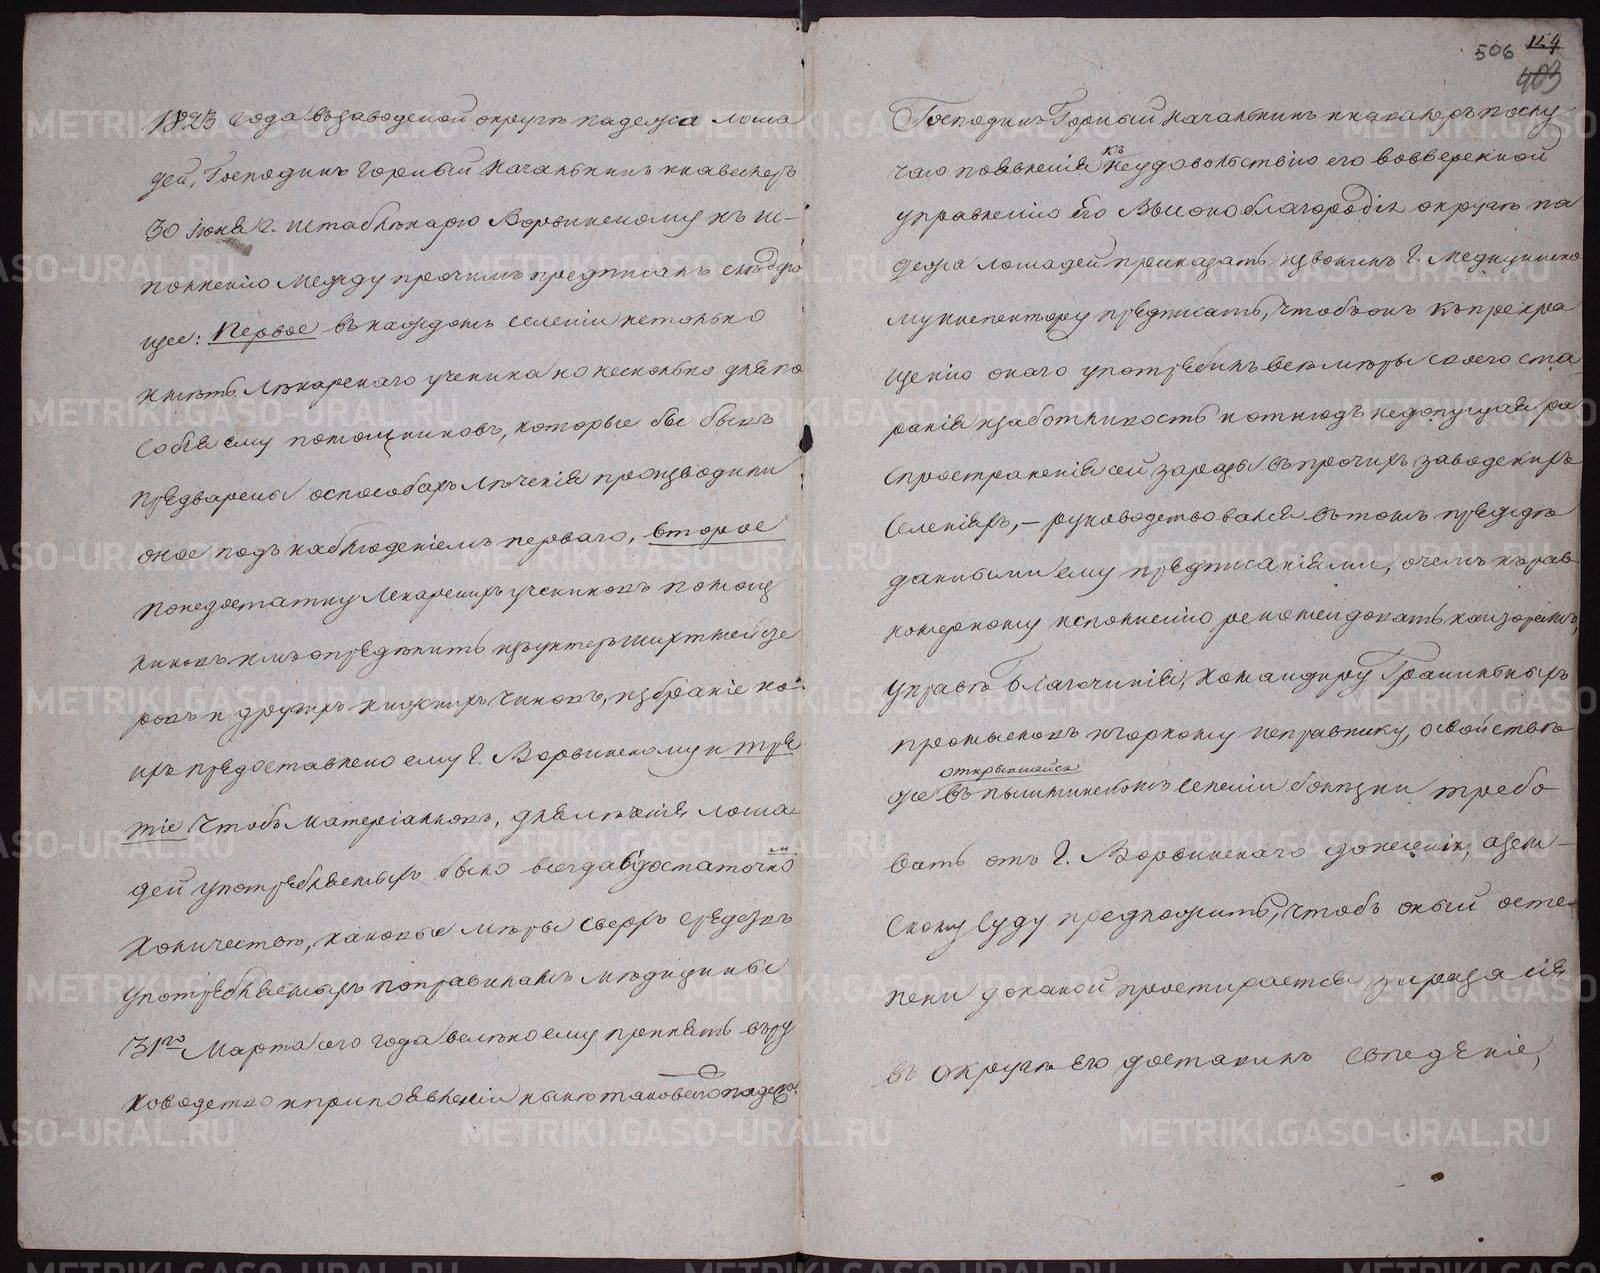 1823 года въ заводской округѣ падежа лоша
дей, Господинъ Горный Начальникъ и кавалеръ
30 Іюня Г. Штаблѣкарю Ворвинскому къ ис-
полненію между прочимъ предписалъ слѣдую
щее: Первое въ каждомъ селеніи не только
имѣть Лѣкарскаго ученика но несколько для по
собія ему помощниковъ, которые бы бывъ
предварены о способахъ лѣченія производили
оное подъ наблюденіемъ перваго, второе
По недостатку Лекарскихъ учениковъ помощ
никовъ имъ опредѣлить изъ унтеръ шихтмейсте
ровъ и другихъ нижнихъ чиновъ, избраніе ко
ихъ предоставлено ему Г. Ворвинскому и тре
тіе Чтобъ матеріаловъ, для лѣченія лоша
дей употребляемыхъ было всегда в достаточно
м
Количествѣ, каковые мѣры сверхъ средствъ
употребляемыхъ по правиламъ медицины
31го Марта сего года велѣно ему принять въ ру
ководство и при появленіи нынѣ таковаго падежа
506
403
Господинъ Горный Начальникъ и кавалеръ по слу
чаю появленія къ неудовольствію его во ввѣренной
управленію Его Высокоблагородія округѣ па
дежа лошадей приказать изволилъ Г. Медицинско
му инспектору предписать, чтобъ онъ къ прекра
щенію онаго употребилъ всѣ мѣры своего ста
ранія и заботливость и отнюдь недопущая ра
спространенія сей заразы въ прочихъ заводскихъ
Селеніяхъ, – руководствовался въ томъ прежде
данными ему предписаніями, о чемъ къ рав
номерному исполненію рекомендовать конторамъ,
Управѣ Благочинія, Командиру Гранильныхъ
промысловъ и горному исправнику, о свойствѣ
же открывшейся въ Пышминскомъ селеніи болезни требо
вать отъ Г. Ворвинскаго донесенія, а Зем-
скому Суду предложить, чтобъ оный о сте
пени до какой простирается зараза сія
въ округѣ Его доставилъ свѣденіе,